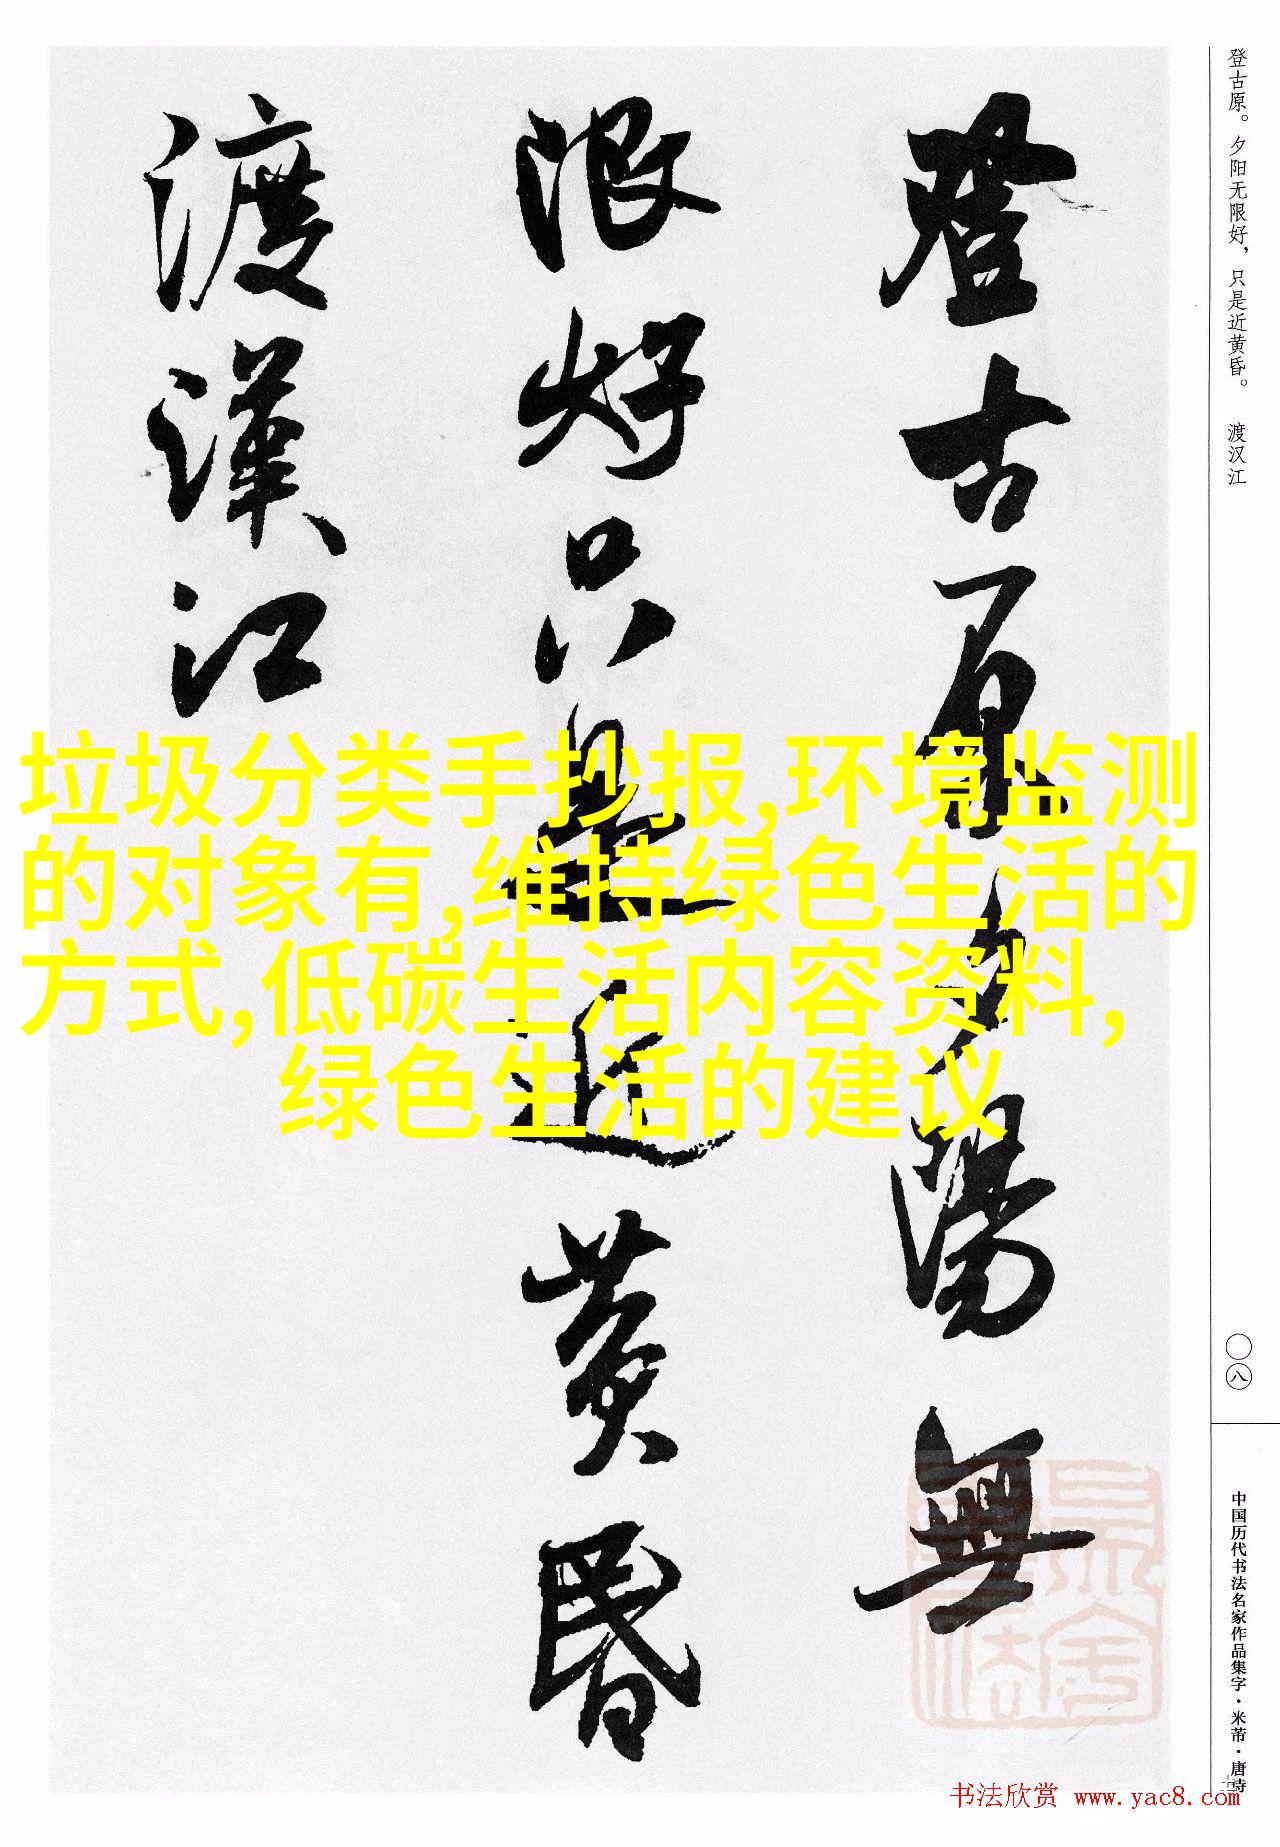 登古原。夕阳无限好，只是近黄昏。　渡汉江
登古原夕陽無
限好只是近黄昏
渡漢江
垃圾分类手抄报,环境监测
的对象有,维持绿色生活的
方式,低碳生活内容资料,
绿色生活的建议
〇八
中国历代书法名家作品集字·米芾·唐诗
书法欣赏 www.yac8.com